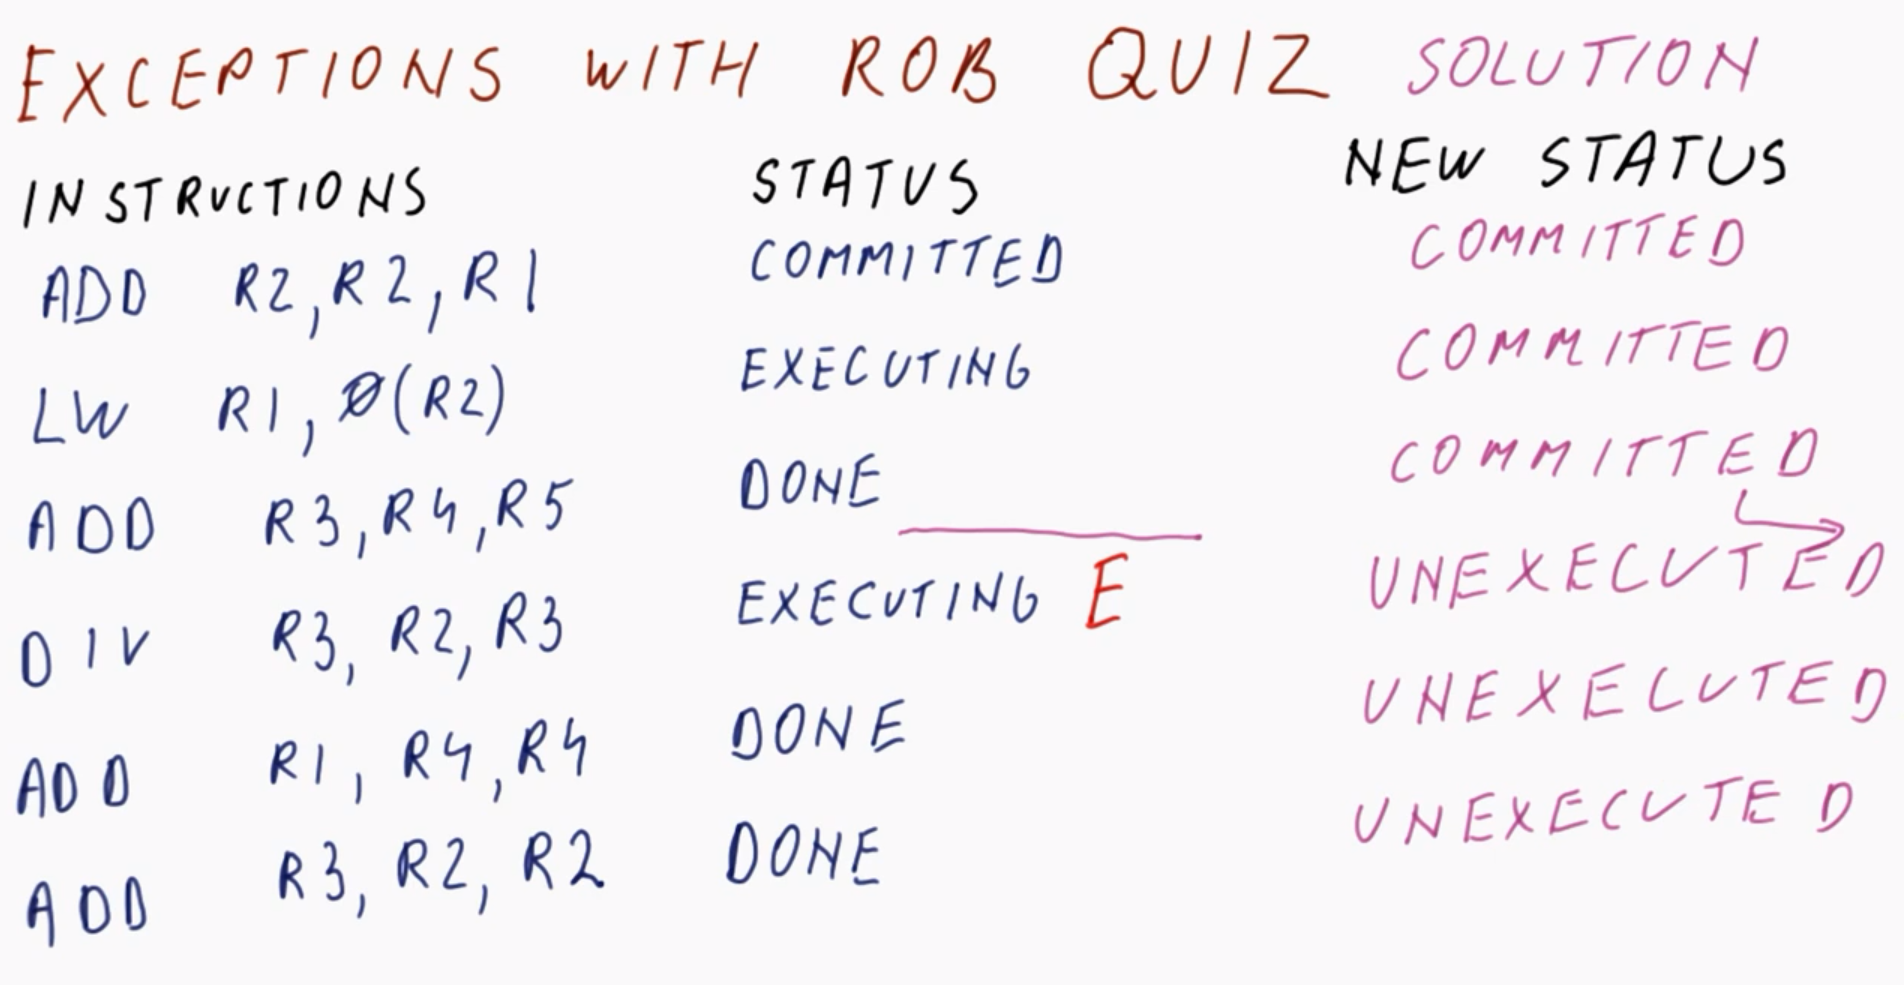 EXCEPTIONS WITH ROB QUIZ SOLUTION
INSTRUCTIONS STATUS NEW STATUS
ADD R2,R2,R1 COMMITTED COMMITTED
LW R1,0(R2) EXECUTING COMMITTED
ADD R3,R4,R5 DONE COMMITTED
DIV R3,R2,R3 EXECUTING E UNEXECUTED
ADD R1,R4,R4 DONE UNEXECUTED
ADD R3,R2,R2 DONE UNEXECUTED